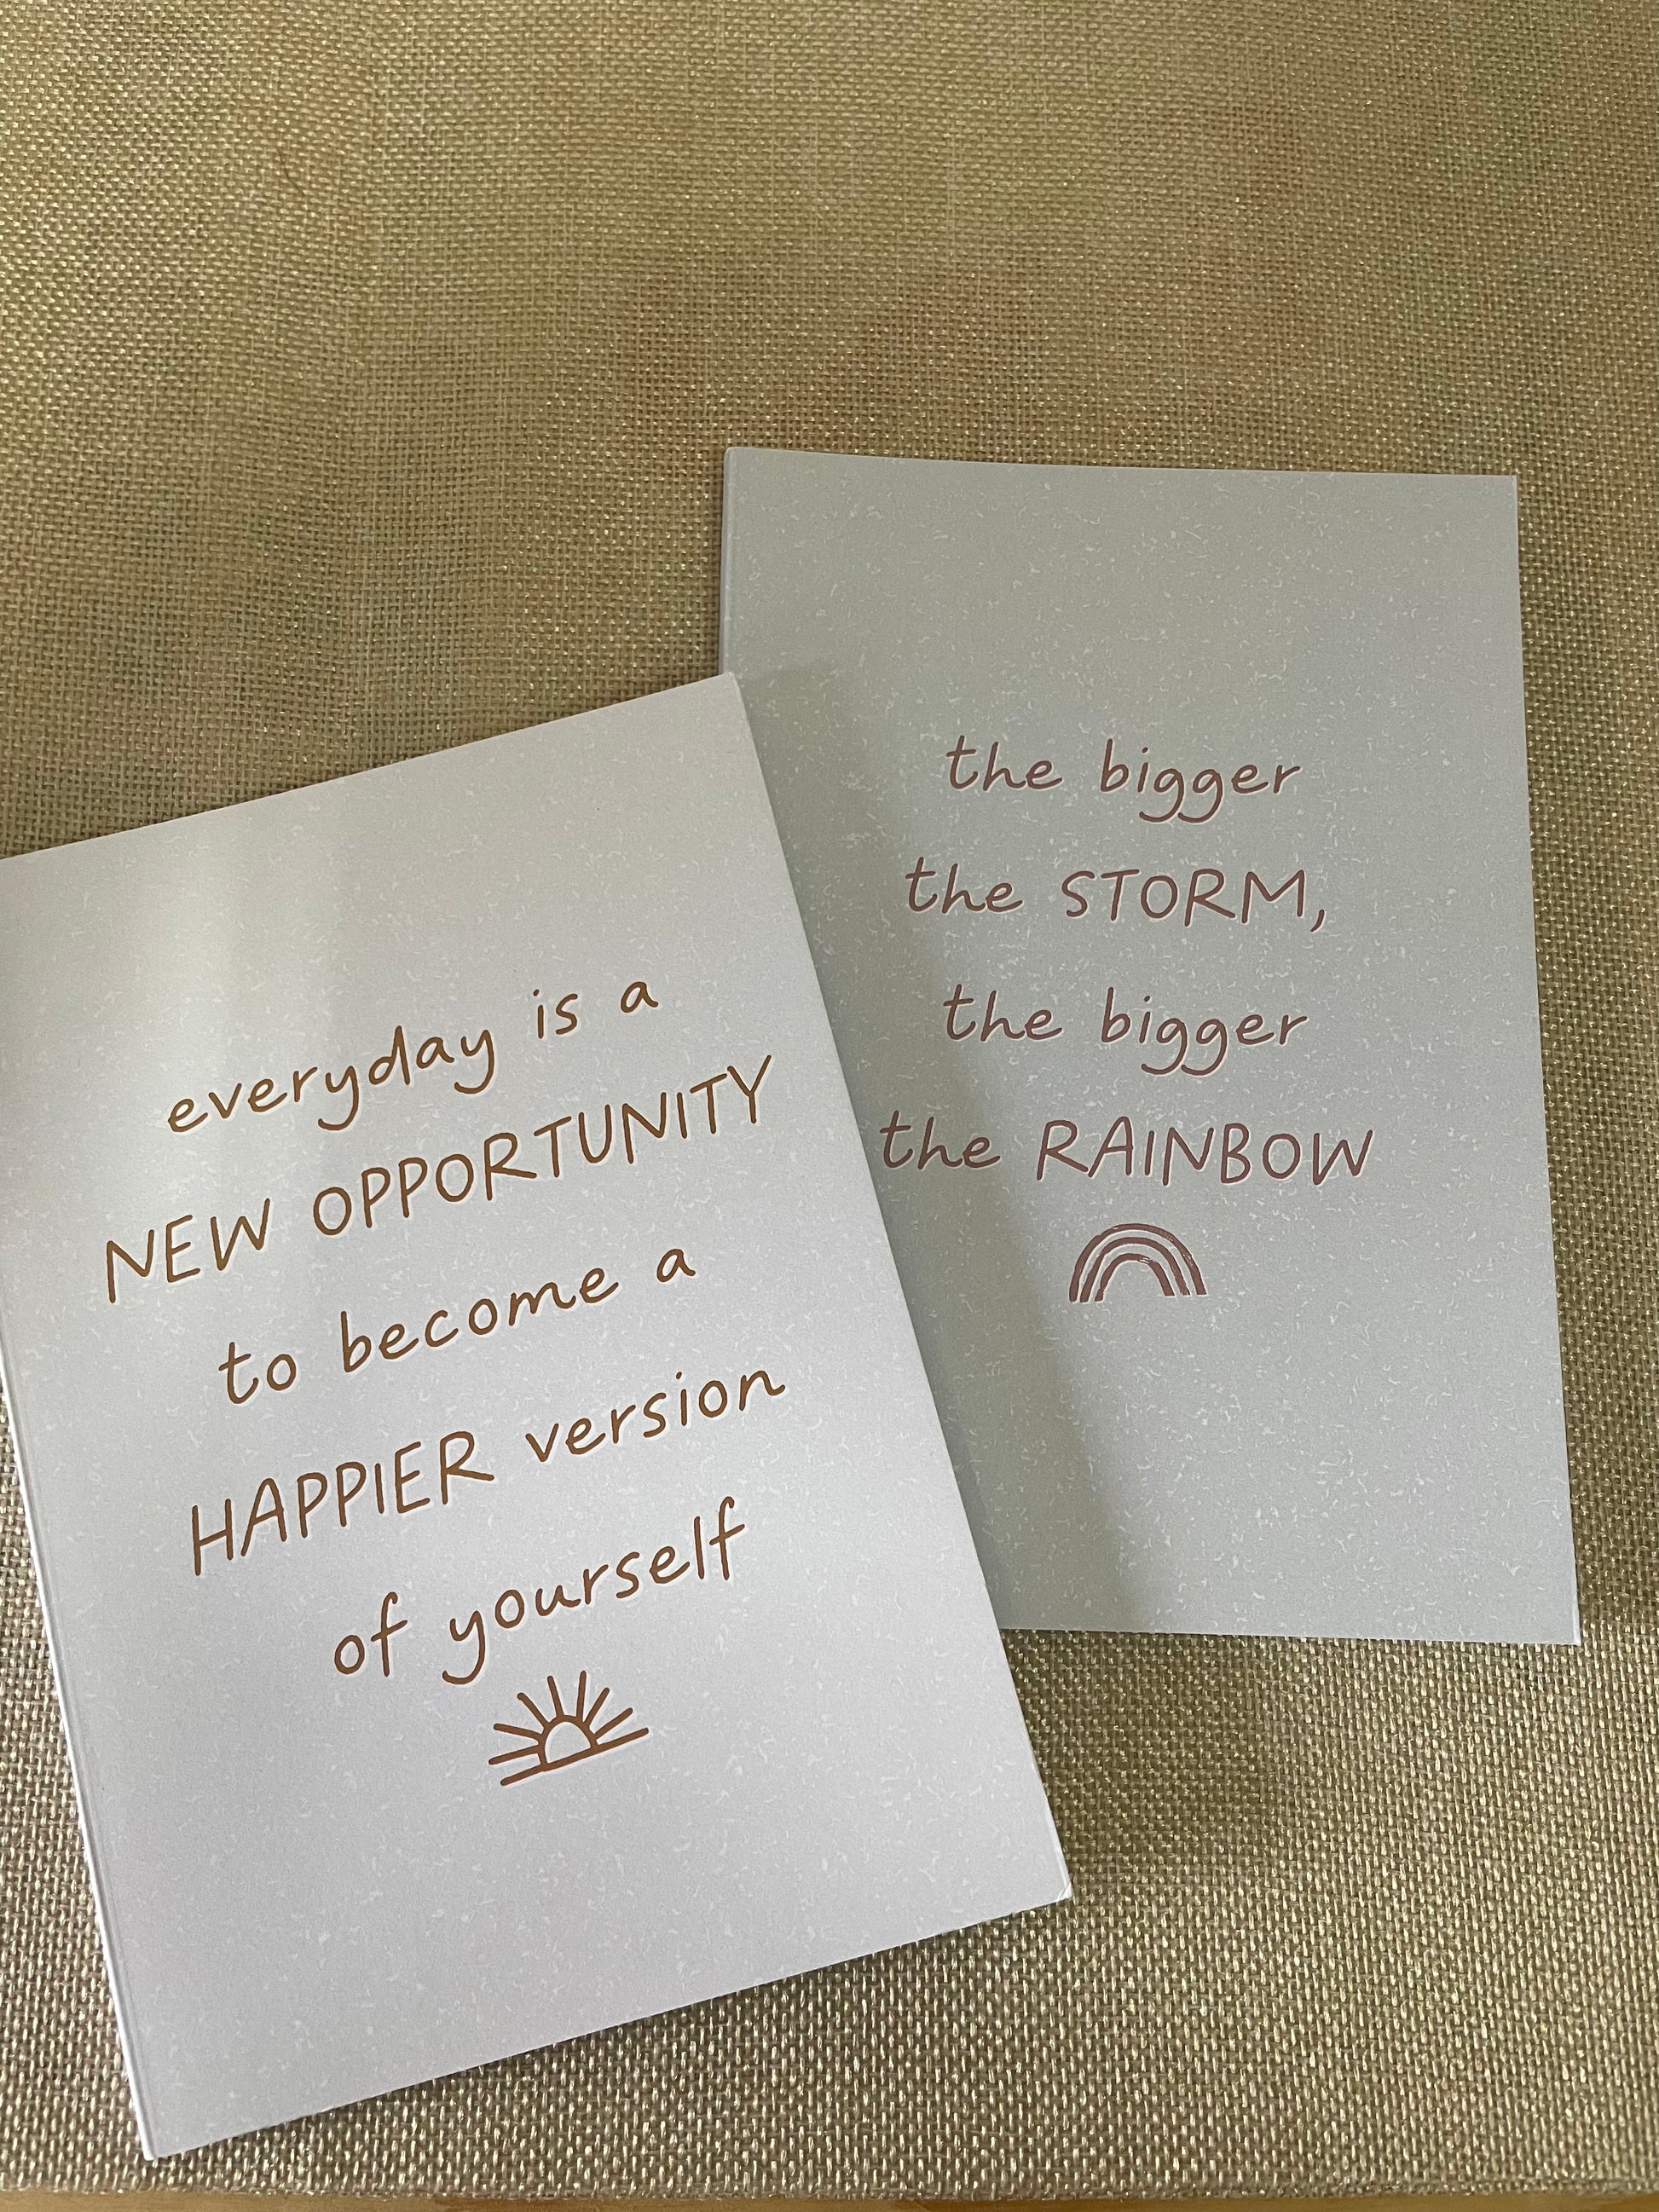 everyday is a
NEW OPPORTUNITY
to become a
HAPPIER version
of yourself
the bigger
the STORM,
the bigger
the RAINBOW